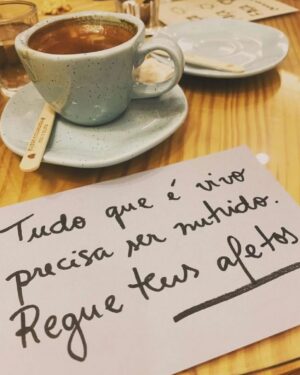 Tudo que é vivo
precisa ser nutrido.
Regue teus afetos